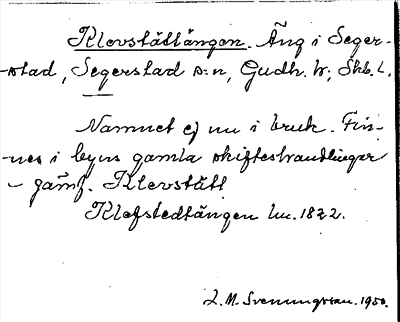 Klevstättängen. Äng i Seger-
-stad, Segerstad s:n, Gudh. h; Skb. l.
Namnet ej nu i bruk. Fin-
nes i byns gamla skifteshandlingar
- jämf. Klevstätt
Klefstedtängen Lm. 1822.
L. M. Svenungsson. 1950.